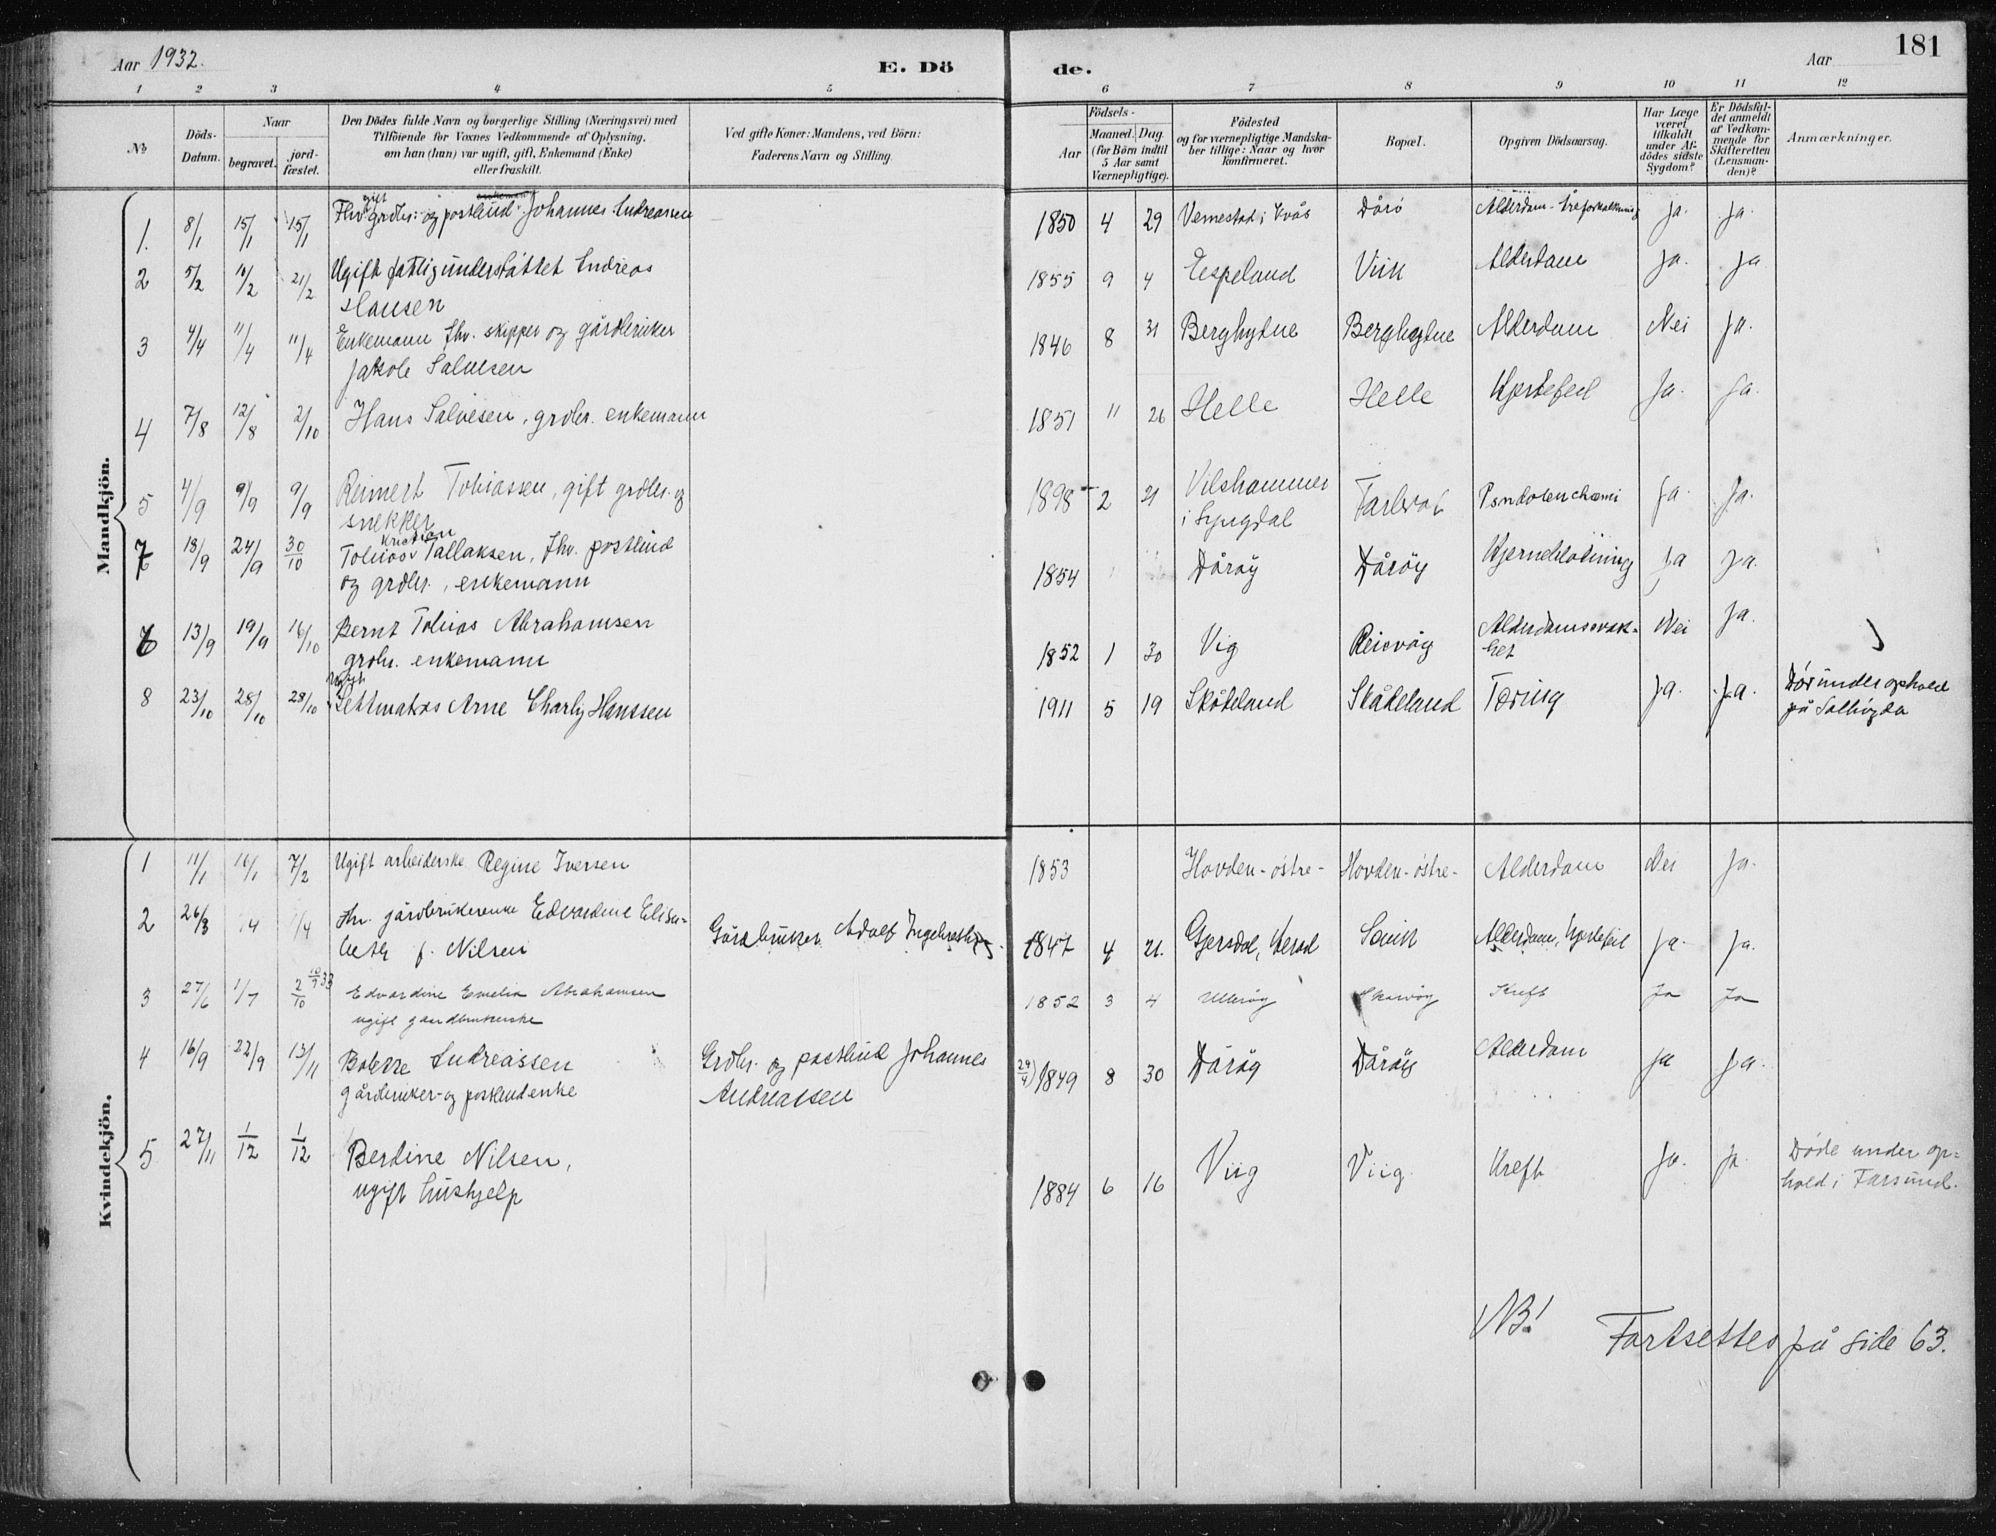 Aar 1932.
E. Dö
de.
Aar
181
1 2 3 4 5 6 7 8 9 10 11 12
No
Döds-
Datum.
Naar
begravet.
jord-
fæstet.
Den Dödes fulde Navn og borgerlige Stilling (Næringsvei) med
Tilföiende for Voxnes Vedkommende af Oplysning,
om han (hun) var ugift, gift, Enkemand (Enke)
eller fraskilt.
Ved gifte Koner: Mandens, ved Börn:
Faderens Navn og Stilling.
Födsels-
Aar
Maaned. Dag.
(for Börn indtil
5 Aar samt
Værnepligtige).
Födested
og for værnepligtige Mandska-
ber tillige: Naar og hvor
konfirmeret.
Bopæl.
Opgiven Dödsaarsag.
Har Læge
været
tilkaldt
under Af-
dödes sidste
Sygdom?
Er Dödsfal-
det anmeldt
af Vedkom-
mende for
Skifteretten
(Lensman-
den)?
Anmærkninger.
Mandkjön.
gift enkemann
1. 8/1 15/1 15/1 Fhv. grdbr. og postbud Johannes Andreassen 1850 4 29 Vemestad i Kvås Dårø Alderdom - åreforkalkning ja. ja.
2 5/2 10/2 21/2 Ugift fattigunderståttet Andreas
Hansen 1855 9 4 Espeland Viik Alderdom ja. ja
3 4/4 11/4 11/4 Enkemann fhv. skipper og gårdbruker
Jakob Salvesen 1846 8 31 Berghytne Berghytne Alderdom Nei ja.
4 7/8 12/8 2/10 Hans Salvesen, grdbr. enkemann 1851 11 26 Helle Helle Hjertefeil Ja. Ja.
5 4/9 9/9 9/9 Reinert Tobiassen, gift grdbr. og
snekker 1898 2 21 Vilshammer
i Lyngdal ja. Ja.
kristian
7 18/9 24/9 30/10 Tobias Tallaksen, fhv. postbud
og grdbr., enkemann 1854 Dårøy Dårøy Hjerneblødning ja ja.
6 13/9 19/9 16/10 Bernt Tobias Abrahamsen
grdbr. enkemann 1852 1 30 Vig Reisvåg Alderdomssvak-
het Nei ja.
ugift
8 23/10 28/10 28/10 Lettmatros Arne Charly Hanssen 1911 5 19 Skåteland Skåteland Tæring ja. ja. Dør under ophold
på Solbygda
Kvindekjön.
1 11/1 16/1 7/2 Ugift arbeiderske Regine Iversen 1853 Hovden-østre- Hovden-østre- Alderdom Nei ja.
2 26/3 1/4 1/4 fhv. gårdbrukerenke Edvardine Elisa-
beth f. Nilsen Gårdbruker Adolf Ingebrethsen 1847 4 21. Gjersdal, Herad Sævik Alderdom, Hjertefeil ja. ja.
3 27/6 1/7 2/10 10/7 33 Edvardine Emelia Abrahamsen
ugift gaardbrukerske 1852 3 4 Ullerøy Kreft Ja Ja
4 16/9 22/9 13/11 Bolette Andreassen
gårdbruker- og postbudenke Grdbr. og postbud Johannes
Andreassen 29/4) 1849 8 30 Dårøy Dårøy Alderdom ja ja.
5 27/11 1/12 1/12 Berdine Nilsen,
ugift hushjelp 1884 6 16 Viig Viig Kreft ja. ja. Døde under op=
hold i Farsund.
NB! Fortsettes på side 63.